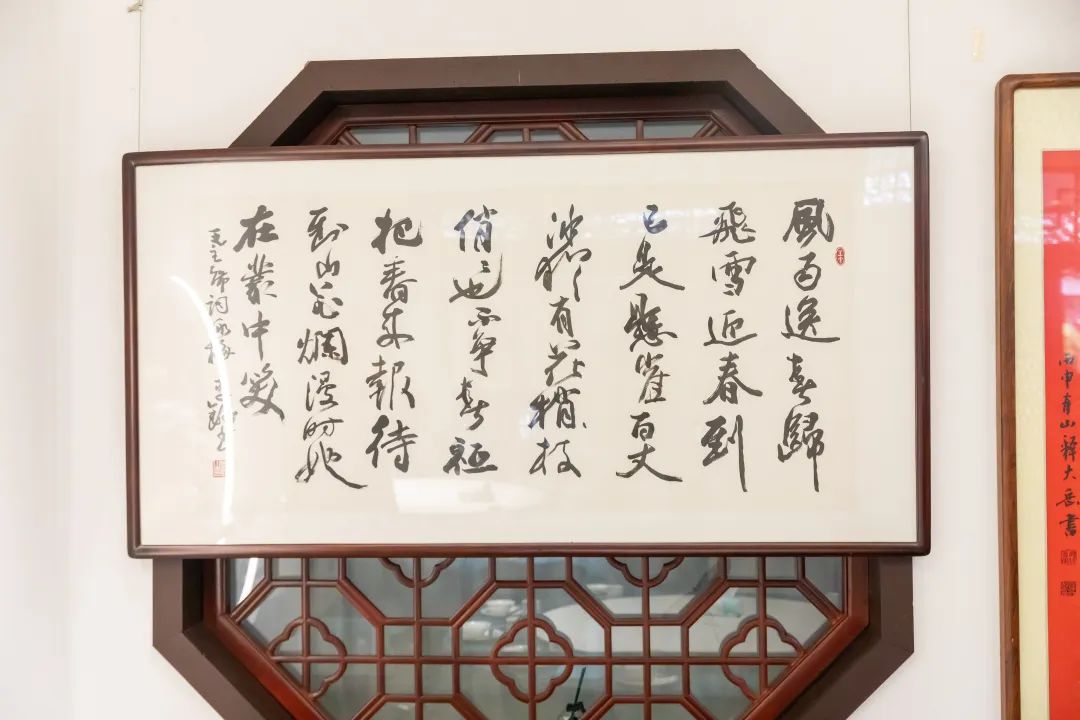 風雨送春歸
飛雪迎春到
已是懸崖百丈
冰猶有花梢枝
俏〻也不爭春祗
把春來報待
到山花爛漫時她
在叢中笑
毛主席詞詠梅
丙申青山釋大岳書